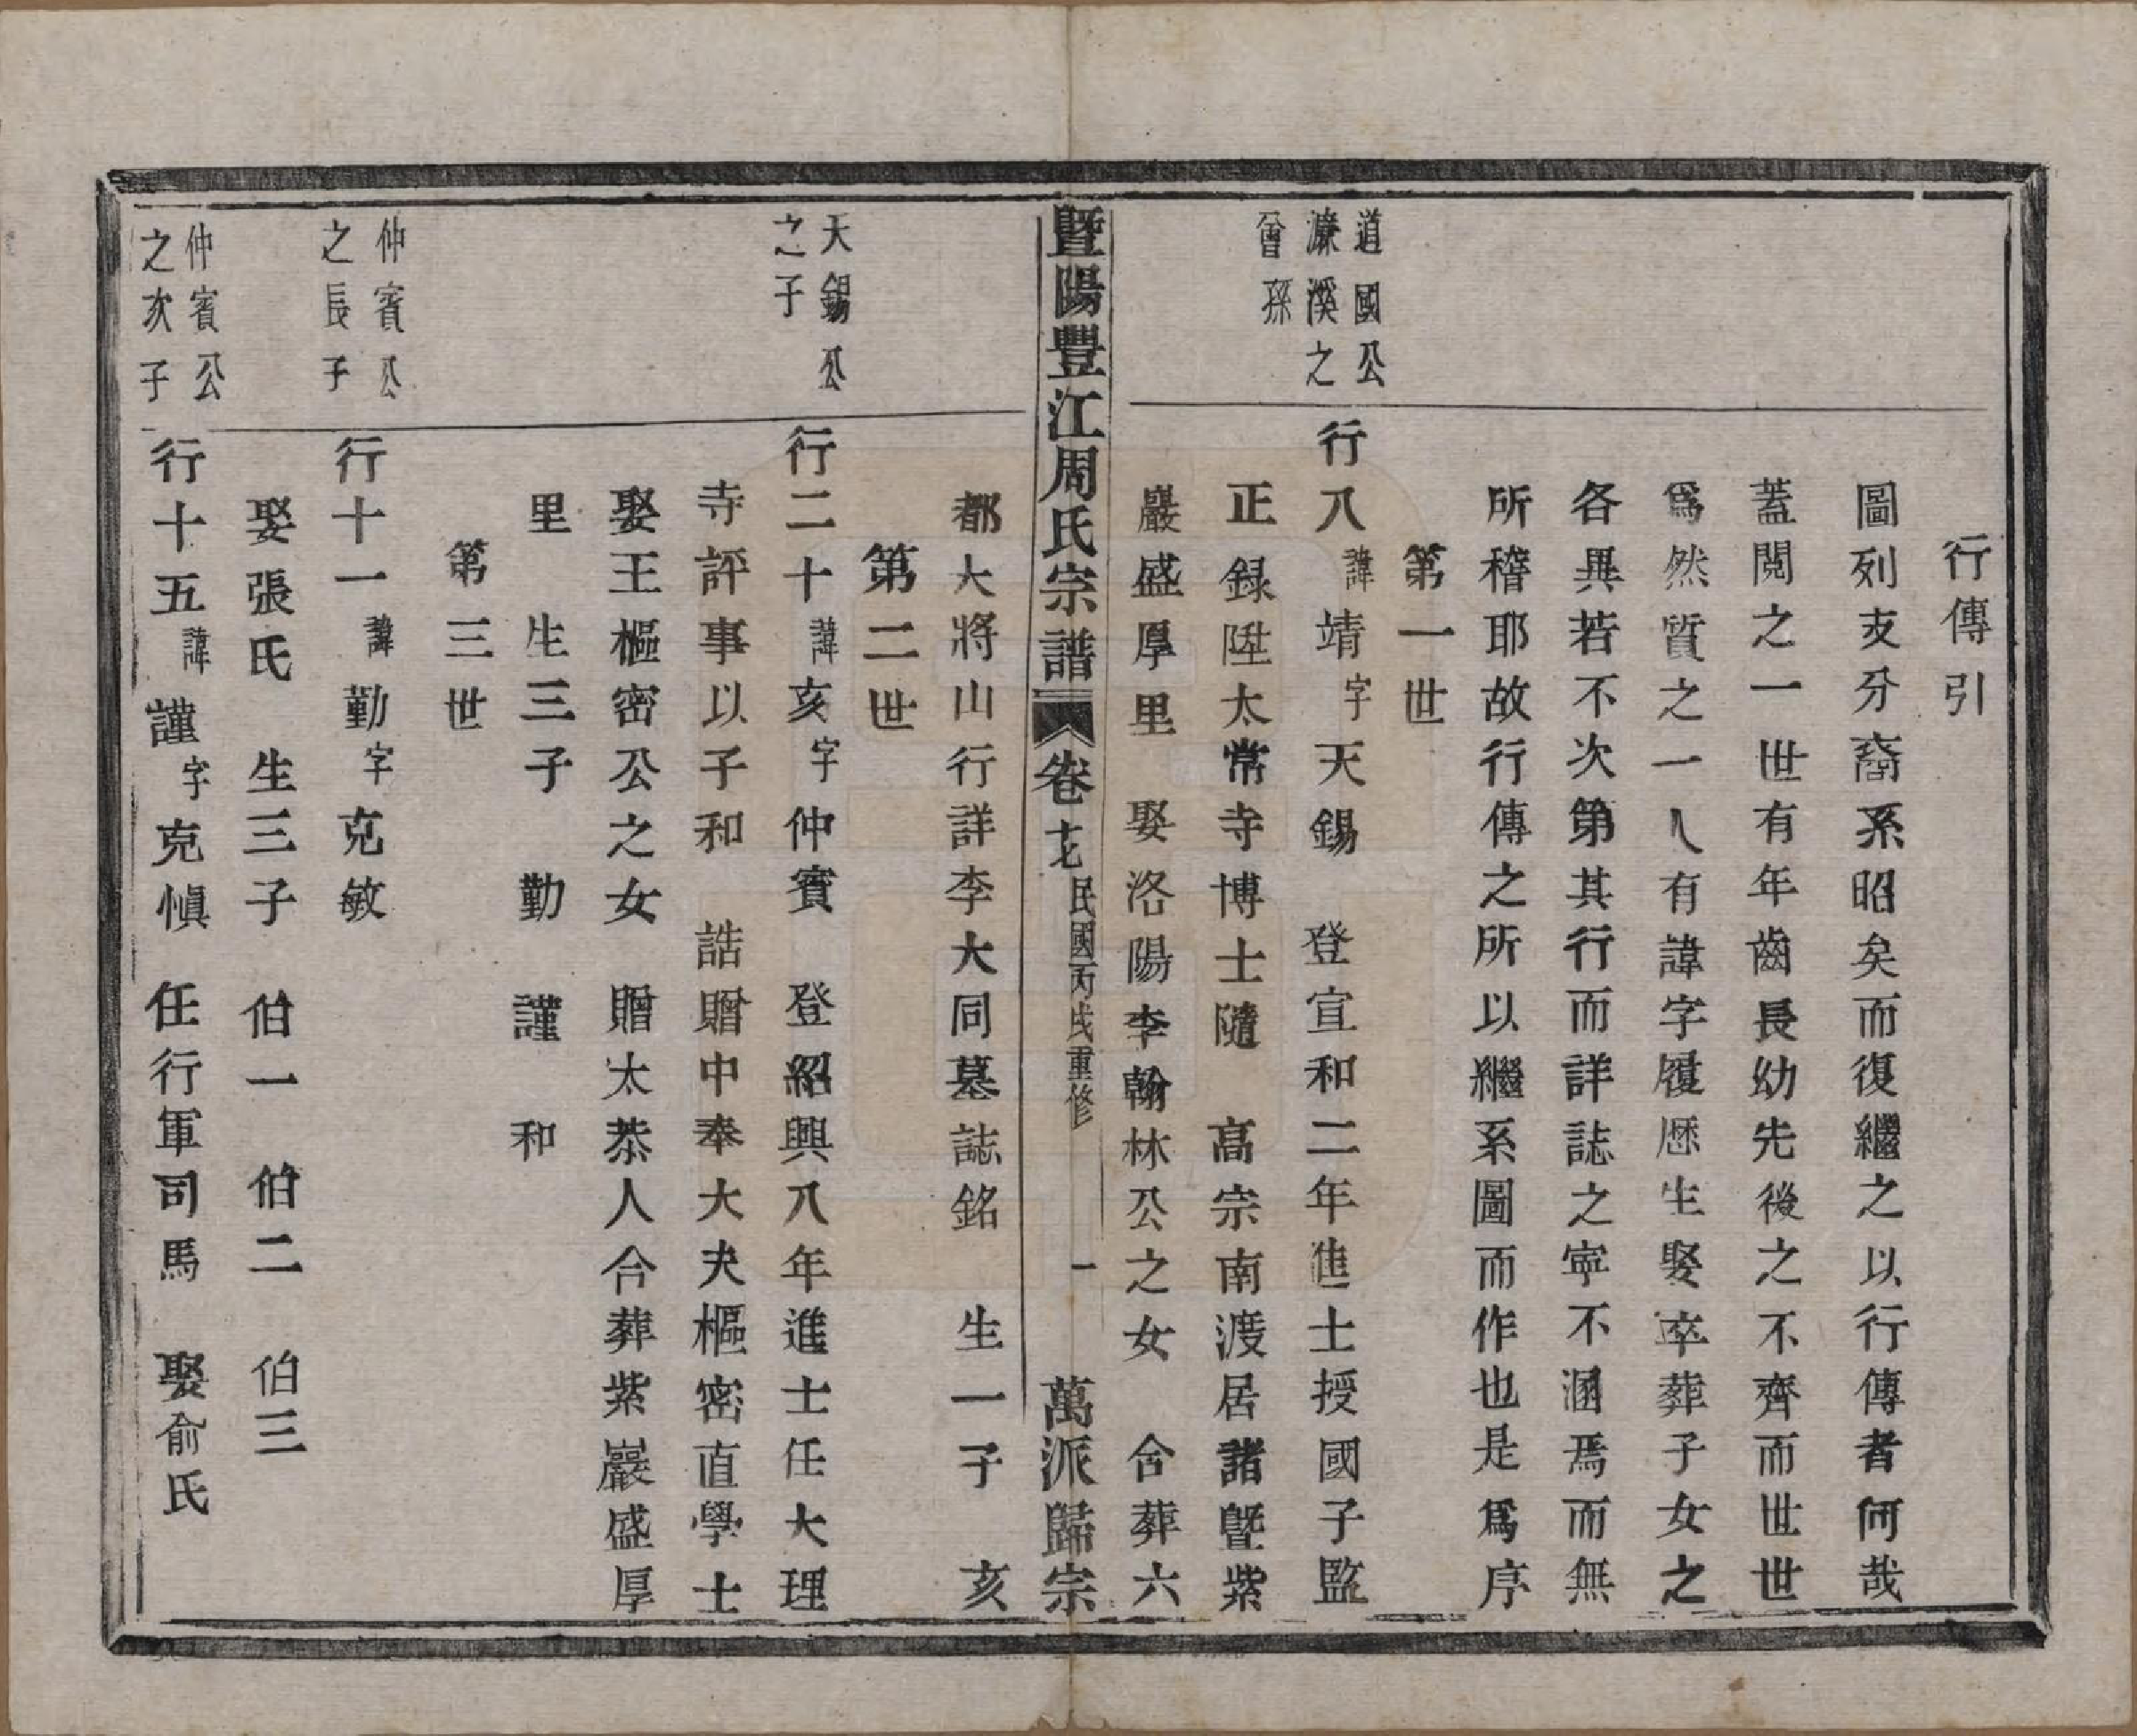 行傳引
圖列支分裔系昭矣而復繼之以行傳者何哉
蓋閱之一世有年齒長幼先後之不齊而世世
爲然質之一人有諱字履歷生娶卒葬子女之
各異若不次第其行而詳誌之寧不溷焉而無
所稽耶故行傳之所以繼系圖而作也是爲序
第一世
道國公
濂溪之
曾孫
行八諱靖字天錫 登宣和二年進士授國子監
正錄陞太常寺博士隨 高宗南渡居諸暨紫
巖盛厚里 娶洛陽李翰林公之女 合葬六
暨陽豐江周氏宗譜 卷 民國丙戌重修 一 萬派歸宗
都大將山行詳李大同墓誌銘 生一子 亥
第二世
天錫公
之子
行二十諱亥字仲賓 登紹興八年進士任大理
寺評事以子和 誥贈中奉大夫樞密直學士
娶王樞密公之女 贈太恭人合葬紫巖盛厚
里 生三子 勤 謹 和
第三世
仲賓公
之長子
行十一諱勤字克敏
娶張氏 生三子 伯一 伯二 伯三
仲賓公
之次子
行十五諱謹字克愼 任行軍司馬 娶俞氏